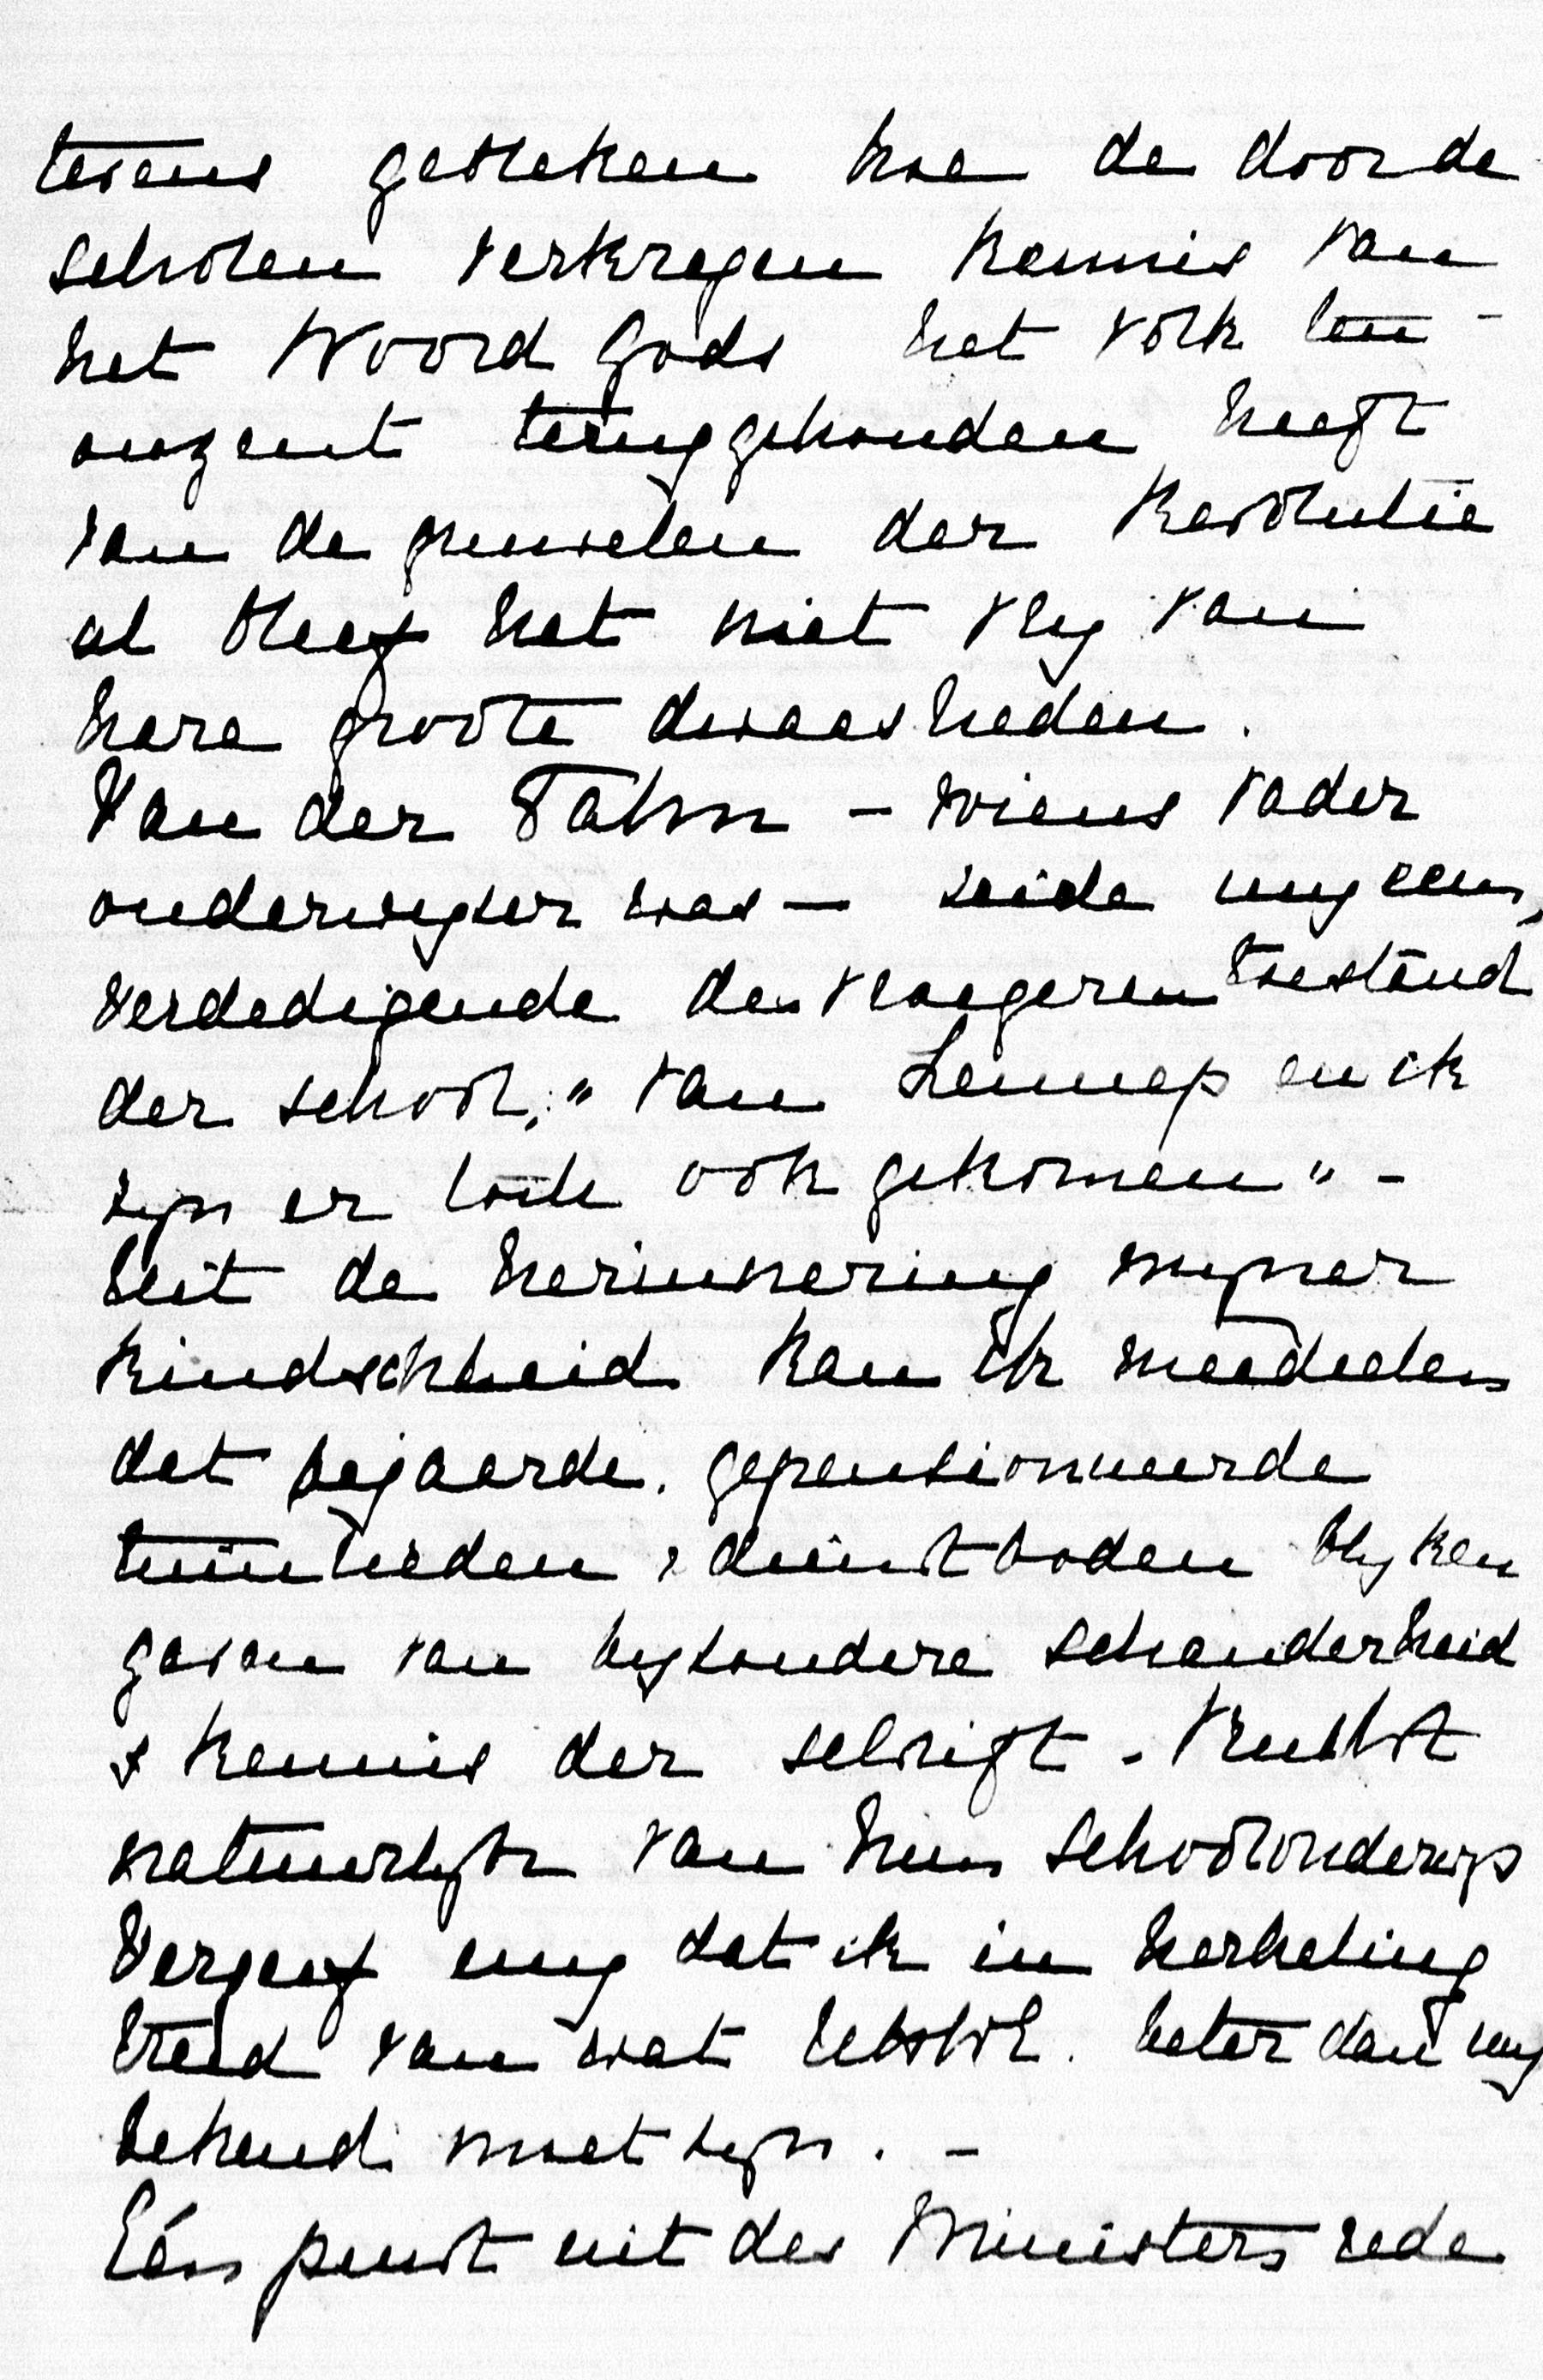 tevens gebleken hoe de door de
scholen verkregen kennis van
het Woord Gods het volk ten
onzent teruggehouden heeft
van de gruwelen der Revolutie
al bleef het niet vry van
hare groote dwaasheden.
Van der Palm - wiens vader
onderwyzer was - zeide my eens,
verdedigende den vroegeren toestand
der school, "van Lennep en ik
zyn er toch ook gekomen" -
Uit de herinnering myner
kindschheid kan ik meedeelen
dat bejaarde gepensionneerde
tuinlieden & dienstboden blyken
gaven van byzondere schranderheid
& kennis der schrift - vrucht
natuurlyk van hun schoolonderwys
Vergeef my dat ik in herhaling
treed van wat beter dan my
bekend moet zyn. -
Eén punt uit des Ministers rede